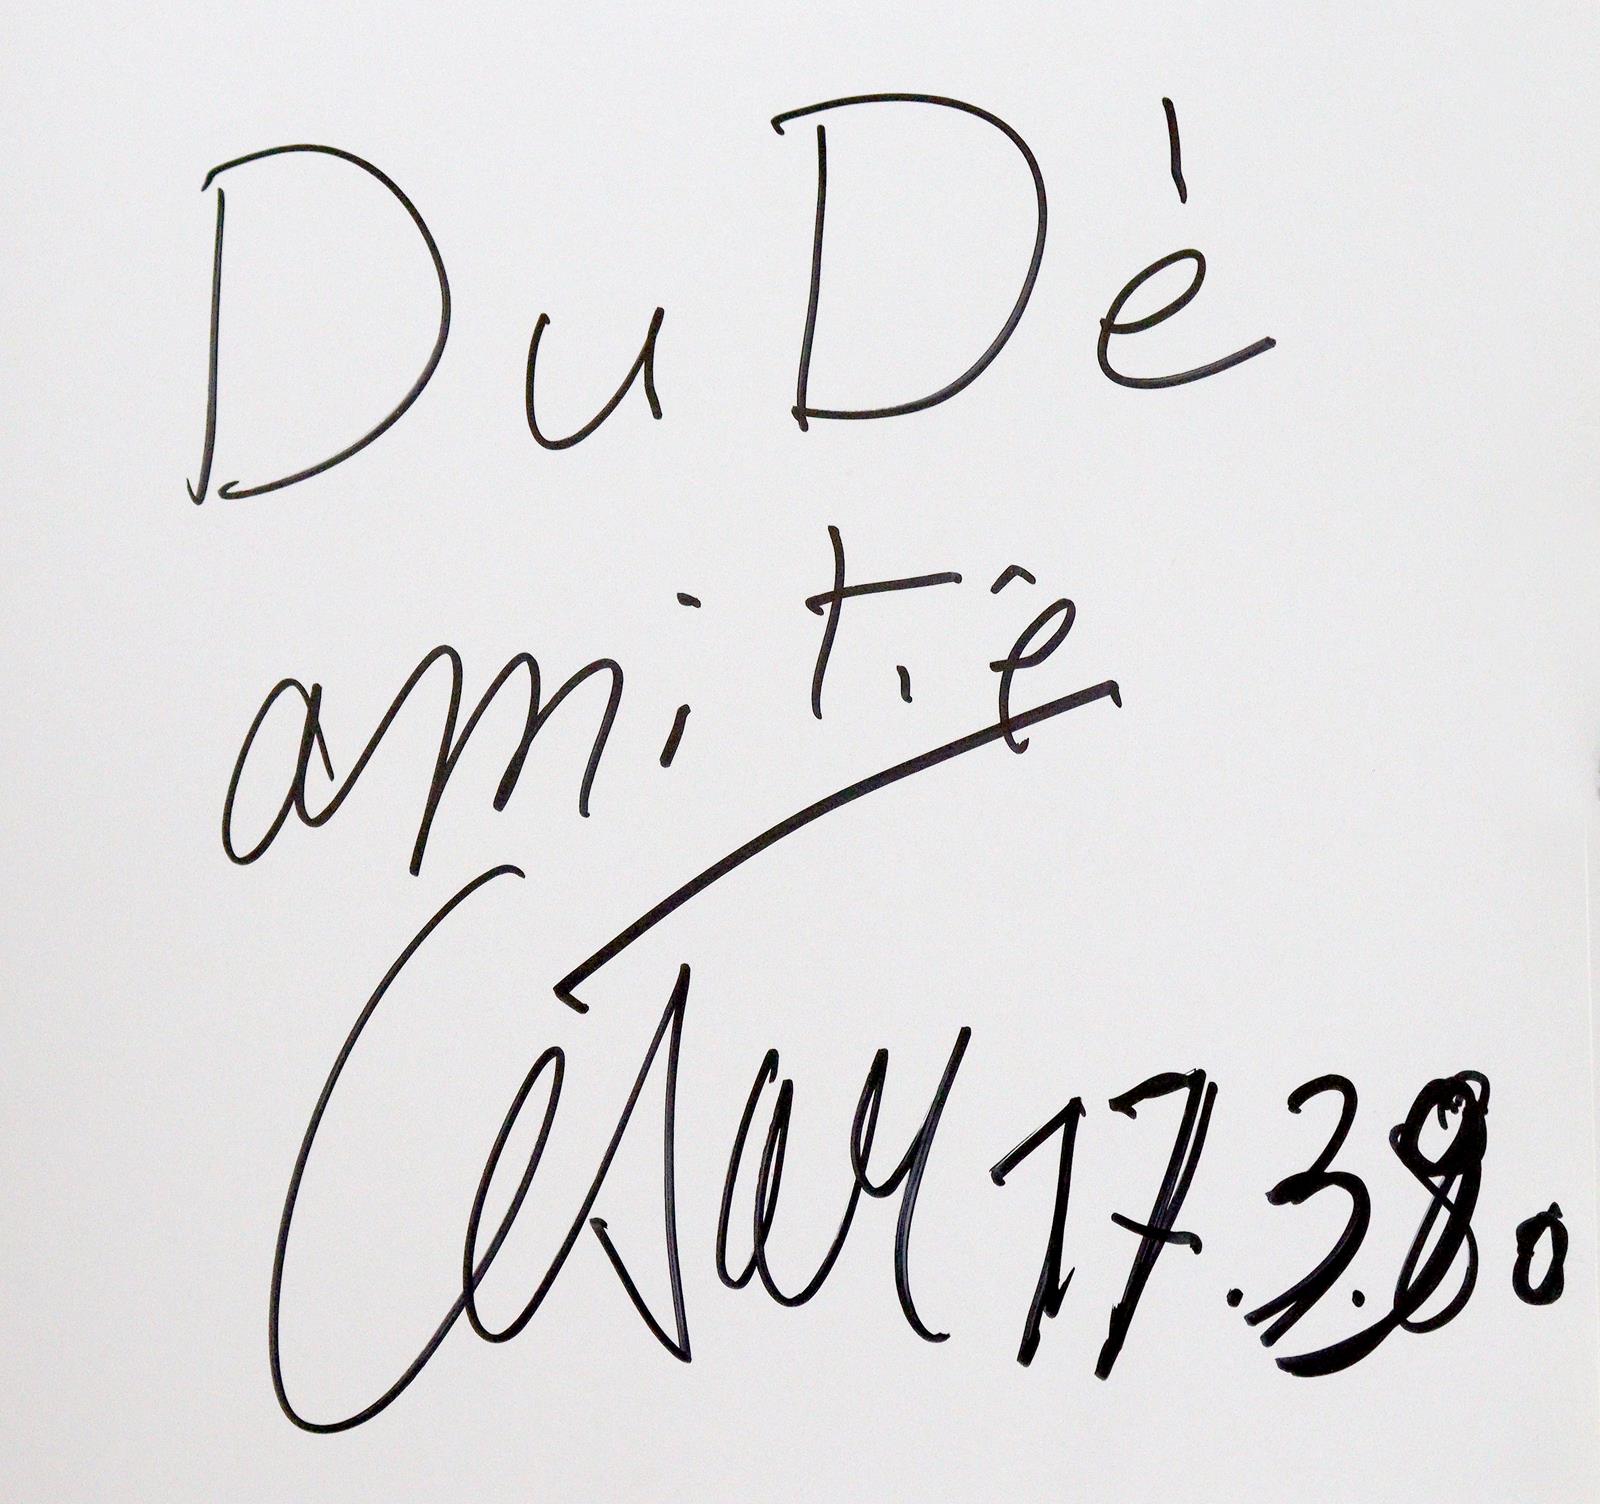 Du Dé
amitiê
César 17.3.80